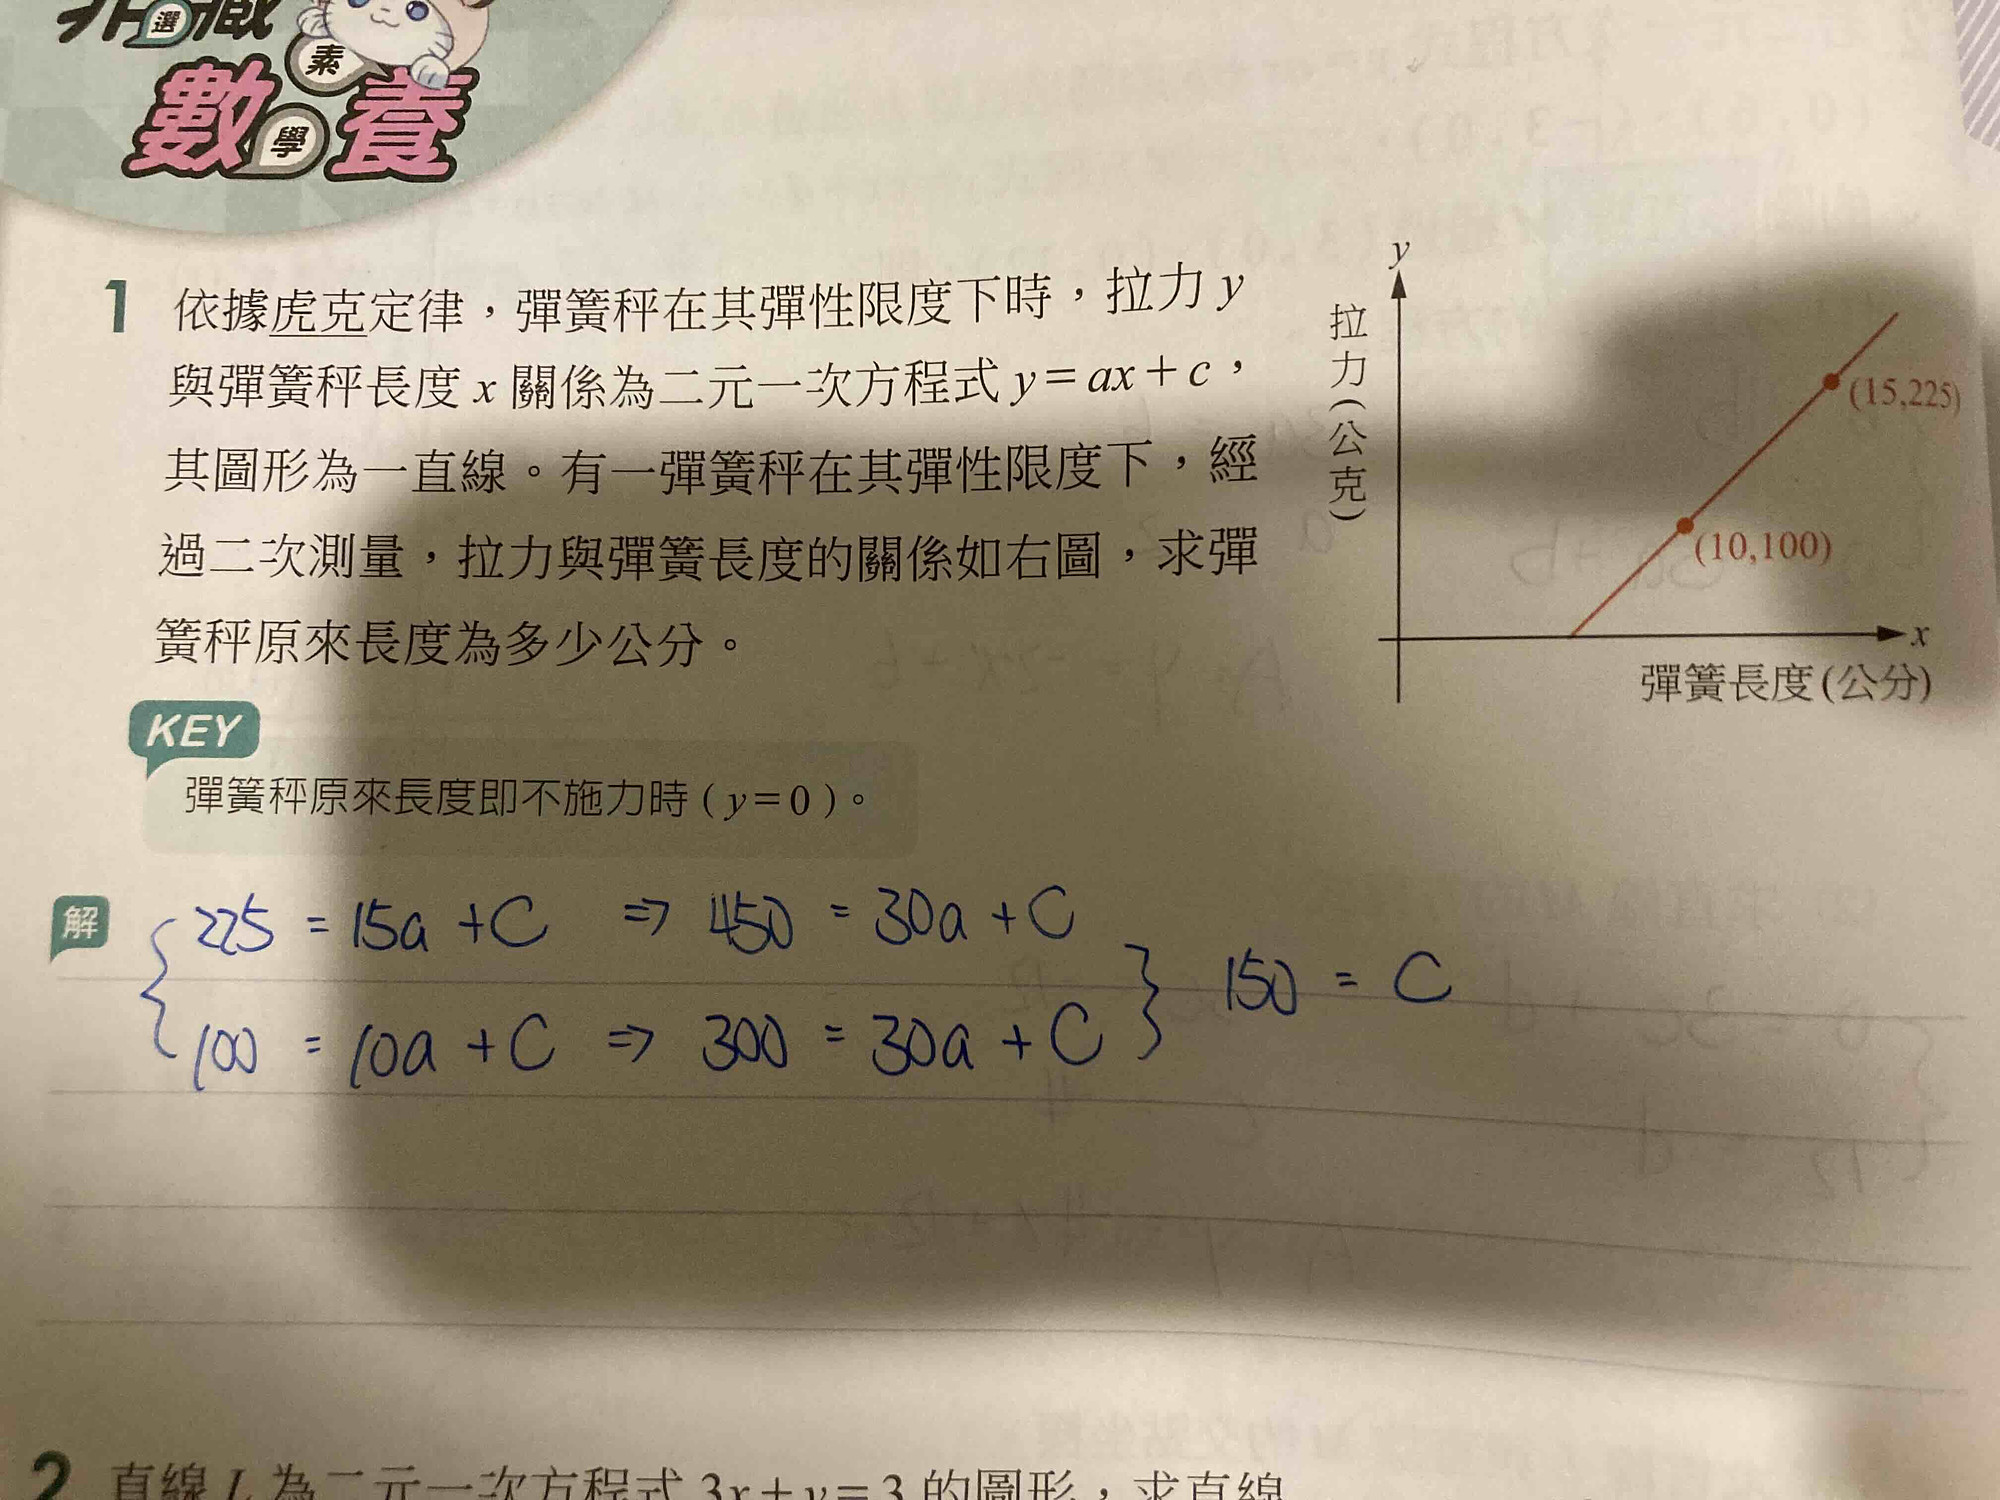 選
素
數學養
1 依據虎克定律,彈簧秤在其彈性限度下時,拉力 y
與彈簧秤長度 x 關係為二元一次方程式 y=ax+c,
其圖形為一直線。有一彈簧秤在其彈性限度下,經
過二次測量,拉力與彈簧長度的關係如右圖,求彈
簧秤原來長度為多少公分。
y
拉力(公克)
(15,225)
(10,100)
x
彈簧長度(公分)
KEY
彈簧秤原來長度即不施力時 ( y=0 )。
解
225 = 15a + C ⇒ 450 = 30a + C
100 = 10a + C ⇒ 300 = 30a + C
150 = C
2 直線 L 為二元一次方程式 3x+y=3 的圖形,求直線